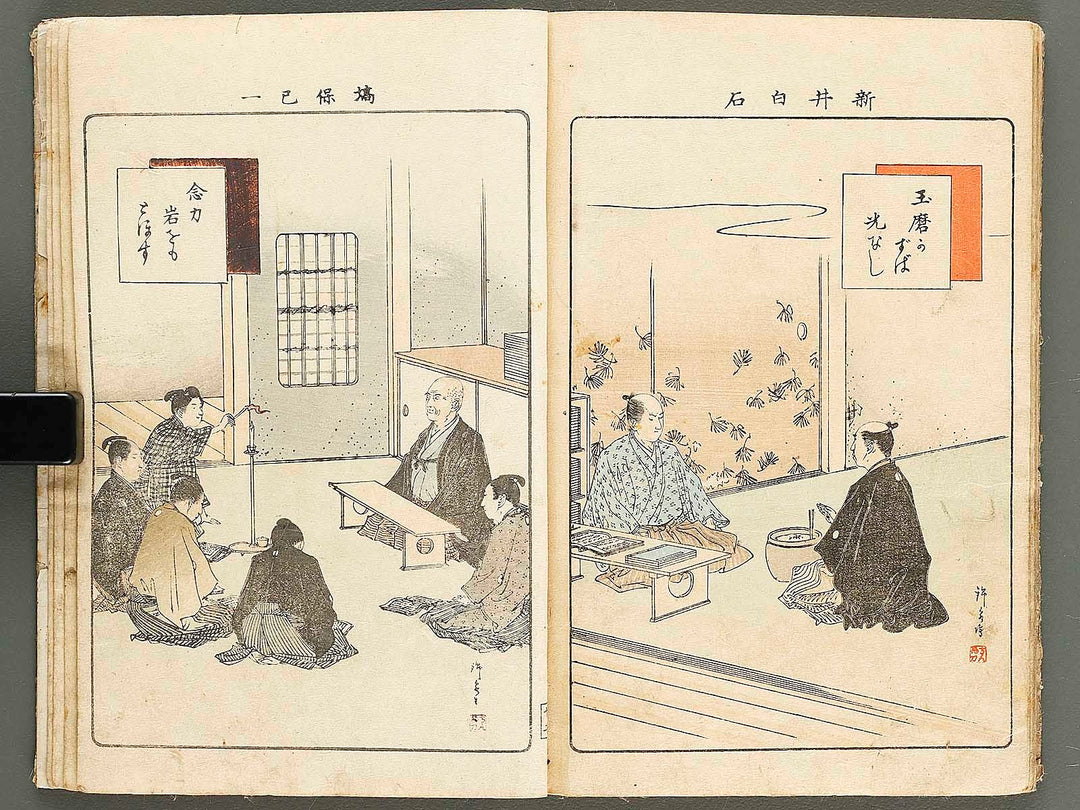 新井白石
玉磨かずば
光なし
塙保己一
念力
岩をも
とほす